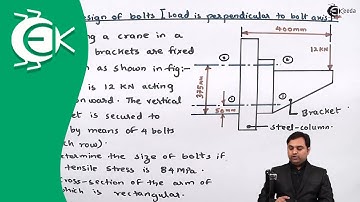 esign of bolts [Load is perpendicular to bolt axis]
ng a crane in a
brackets are fixed
n as shown in fig:-
is 12 KN acting
onward. The vertical
et is secured to
by means of 4 bolts
ch row)
etermine the size of bolts if
tensile stress is 84 MPa.
ross-section of the arm of
which is rectangular.
400mm
12KN
375mm
50mm
Bracket
steel-column
Ekeeda